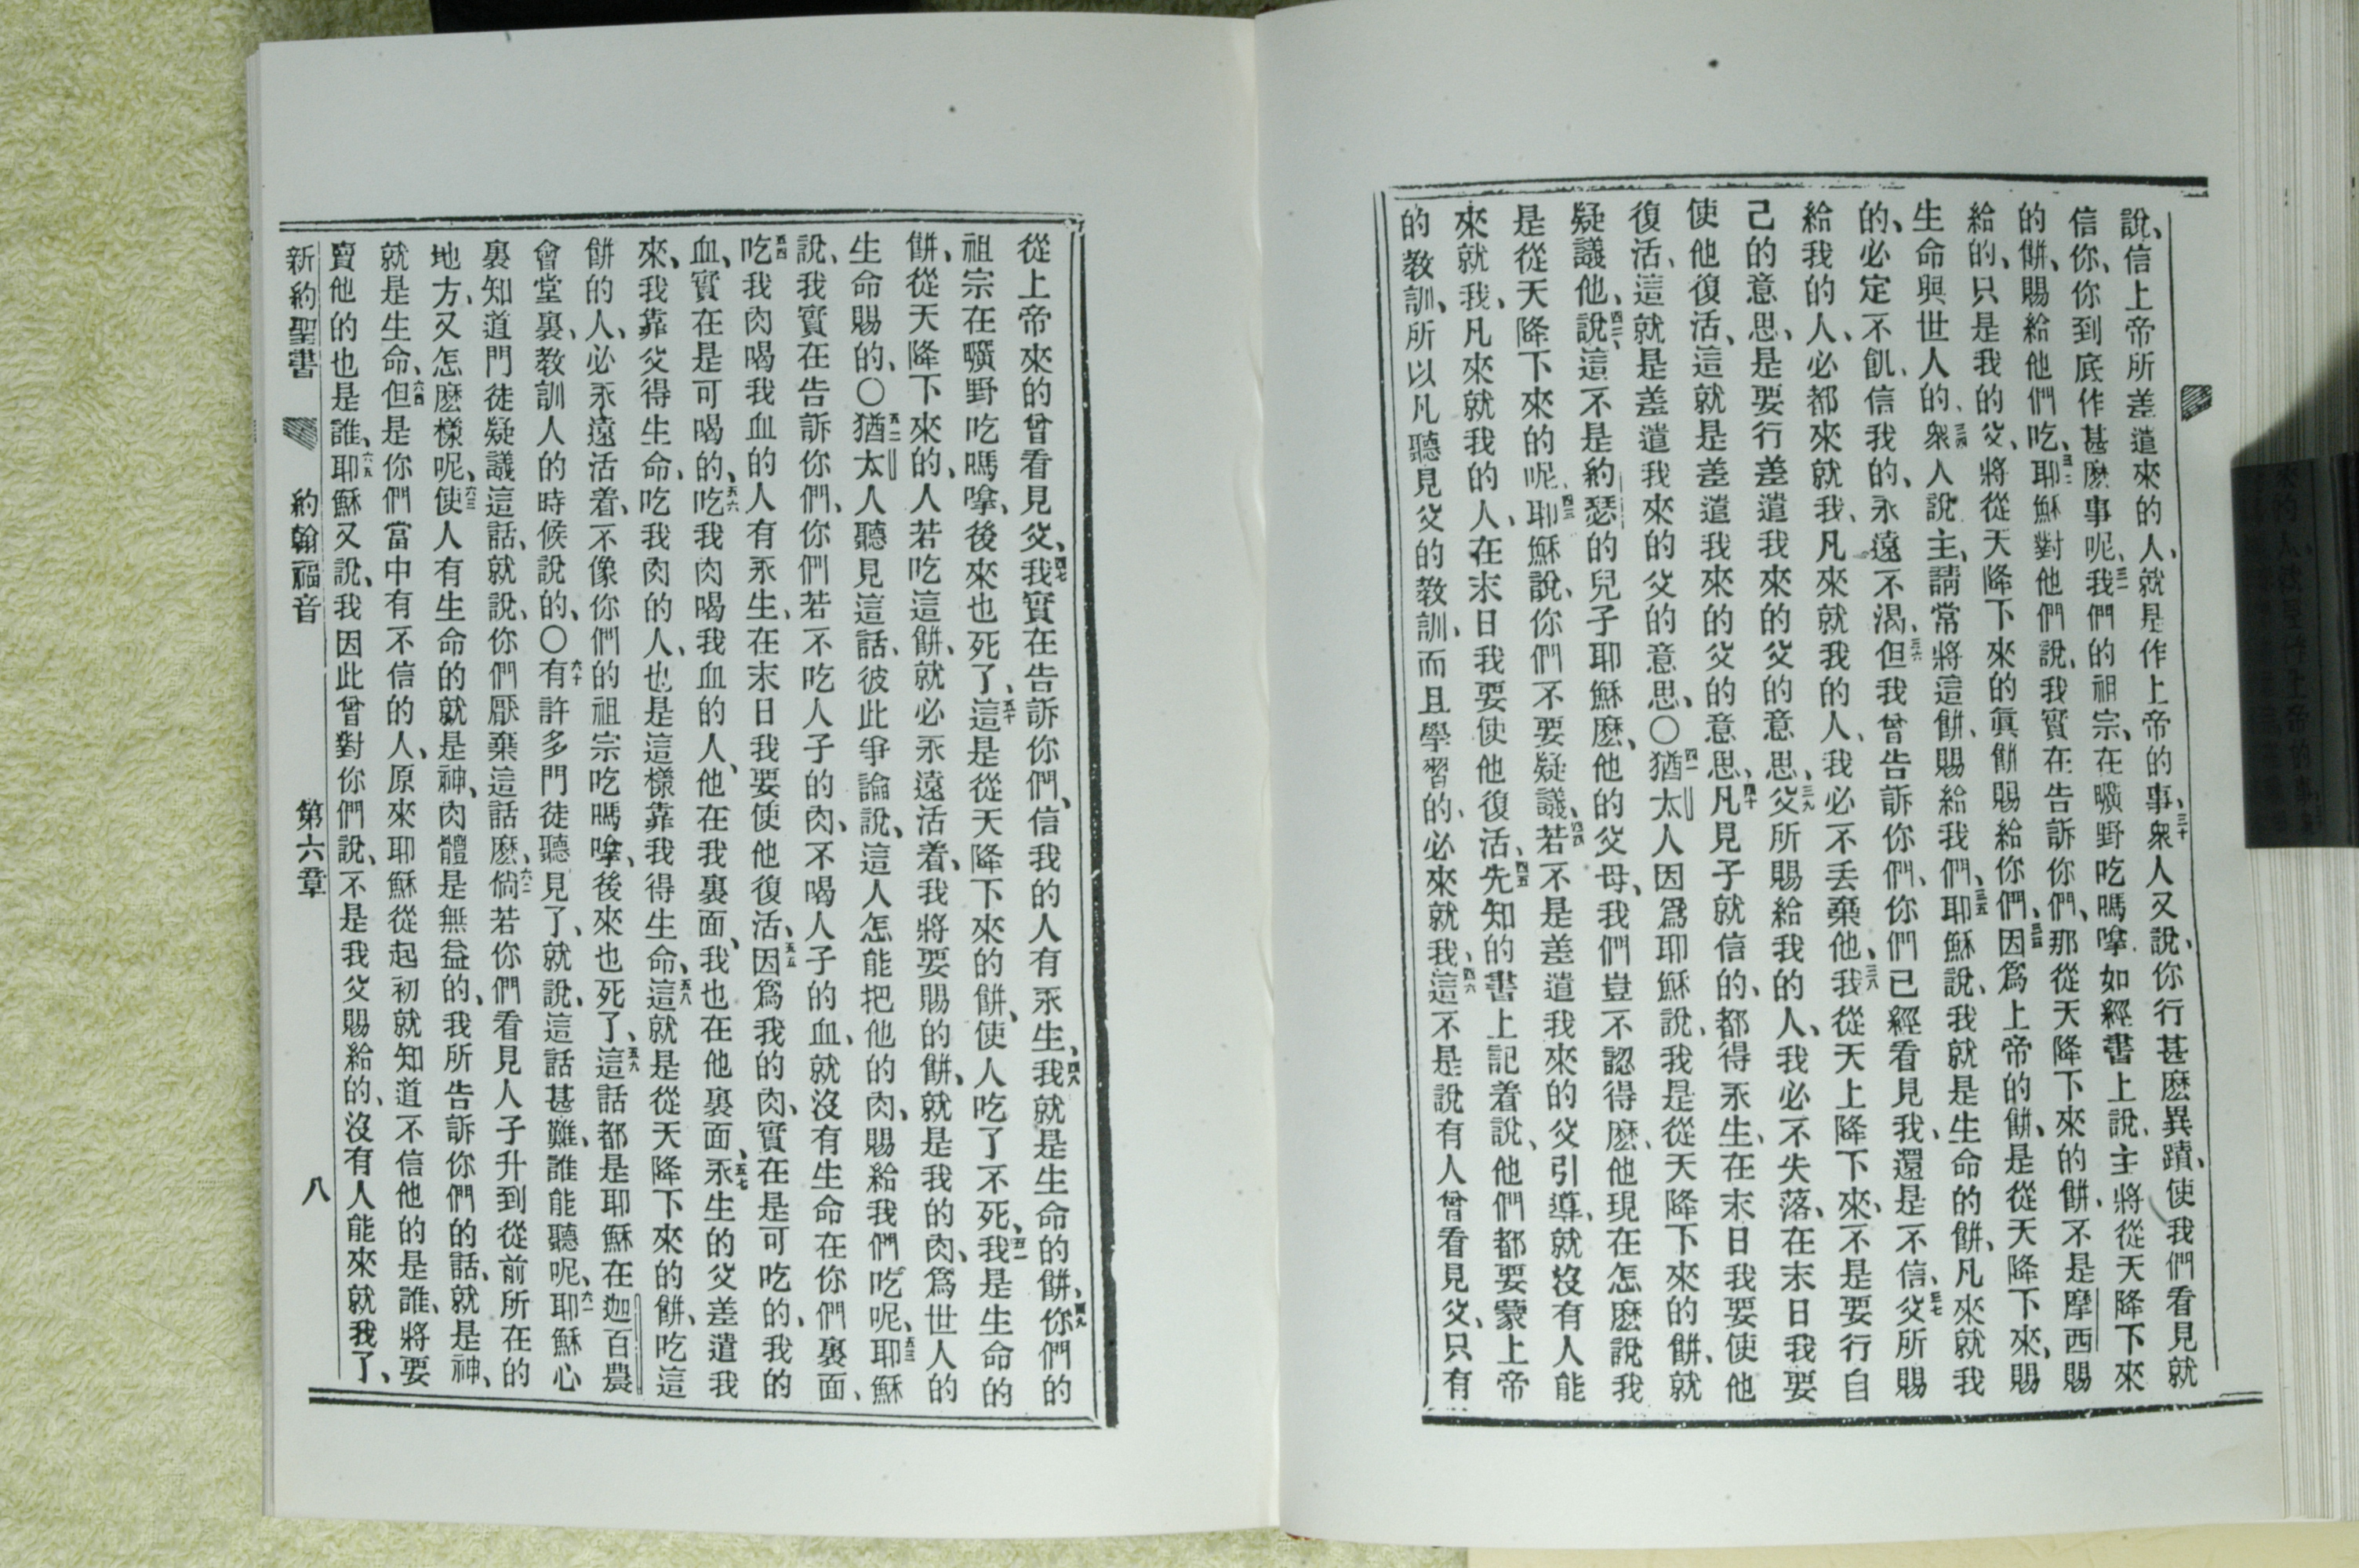 說、信上帝所差遣來的人、就是作上帝的事、三十衆人又說、你行甚麽異蹟、使我們看見就
信你、你到底作甚麽事呢、三一我們的祖宗、在曠野吃嗎嗱、如經書上說、主將從天降下來
的餅、賜給他們吃、三二耶穌對他們說、我實在告訴你們、那從天降下來的餅、不是摩西賜
給的、只是我的父、將從天降下來的眞餅賜給你們、三三因爲上帝的餅、是從天降下來、賜
生命與世人的、三四衆人說、主、請常將這餅、賜給我們、三五耶穌說、我就是生命的餅、凡來就我
的、必定不飢、信我的、永遠不渴、三六但我曾告訴你們、你們已經看見我、還是不信、三七父所賜
給我的人、必都來就我、凡來就我的人、我必不丢棄他、三八我從天上降下來、不是要行自
己的意思、是要行差遣我來的父的意思、三九父所賜給我的人、我必不失落、在末日我要
使他復活、這就是差遣我來的父的意思、四十凡見子就信的、都得永生、在末日我要使他
復活、這就是差遣我來的父的意思、〇四一猶太人因爲耶穌說、我是從天降下來的餅、就
疑議他、四二說、這不是約瑟的兒子耶穌麽、他的父母、我們豈不認得麽、他現在怎麽說我
是從天降下來的呢、四三耶穌說、你們不要疑議、四四若不是差遣我來的父引導、就沒有人能
來就我、凡來就我的人、在末日我要使他復活、四五先知的書上記着說、他們都要蒙上帝
的教訓、所以凡聽見父的教訓、而且學習的、必來就我、四六這不是說有人曾看見父、只有
從上帝來的曾看見父、四七我實在告訴你們、信我的人有永生、四八我就是生命的餅、四九你們的
祖宗在曠野吃嗎嗱、後來也死了、五十這是從天降下來的餅、使人吃了不死、五一我是生命的
餅、從天降下來的、人若吃這餅、就必永遠活着、我將要賜的餅、就是我的肉、爲世人的
生命賜的、〇五二猶太人聽見這話、彼此爭論說、這人怎能把他的肉、賜給我們吃呢、五三耶穌
說、我實在告訴你們、你們若不吃人子的肉、不喝人子的血、就沒有生命在你們裏面、
五四吃我肉喝我血的人有永生、在末日我要使他復活、五五因爲我的肉、實在是可吃的、我的
血、實在是可喝的、五六吃我肉喝我血的人、他在我裏面、我也在他裏面、五七永生的父差遣我
來、我靠父得生命、吃我肉的人、也是這樣靠我得生命、五八這就是從天降下來的餅、吃這
餅的人、必永遠活着、不像你們的祖宗吃嗎嗱、後來也死了、五九這話都是耶穌在迦百農
會堂裏、教訓人的時候說的、〇六十有許多門徒聽見了、就說、這話甚難、誰能聽呢、六一耶穌心
裏知道門徒疑議這話、就說、你們厭棄這話麽、六二倘若你們看見人子升到從前所在的
地方、又怎麽樣呢、六三使人有生命的就是神、肉體是無益的、我所告訴你們的話、就是神、
就是生命、六四但是你們當中有不信的人、原來耶穌從起初就知道不信他的是誰、將要
賣他的也是誰、六五耶穌又說、我因此曾對你們說、不是我父賜給的、沒有人能來就我了、
新約聖書 約翰福音 第六章 八